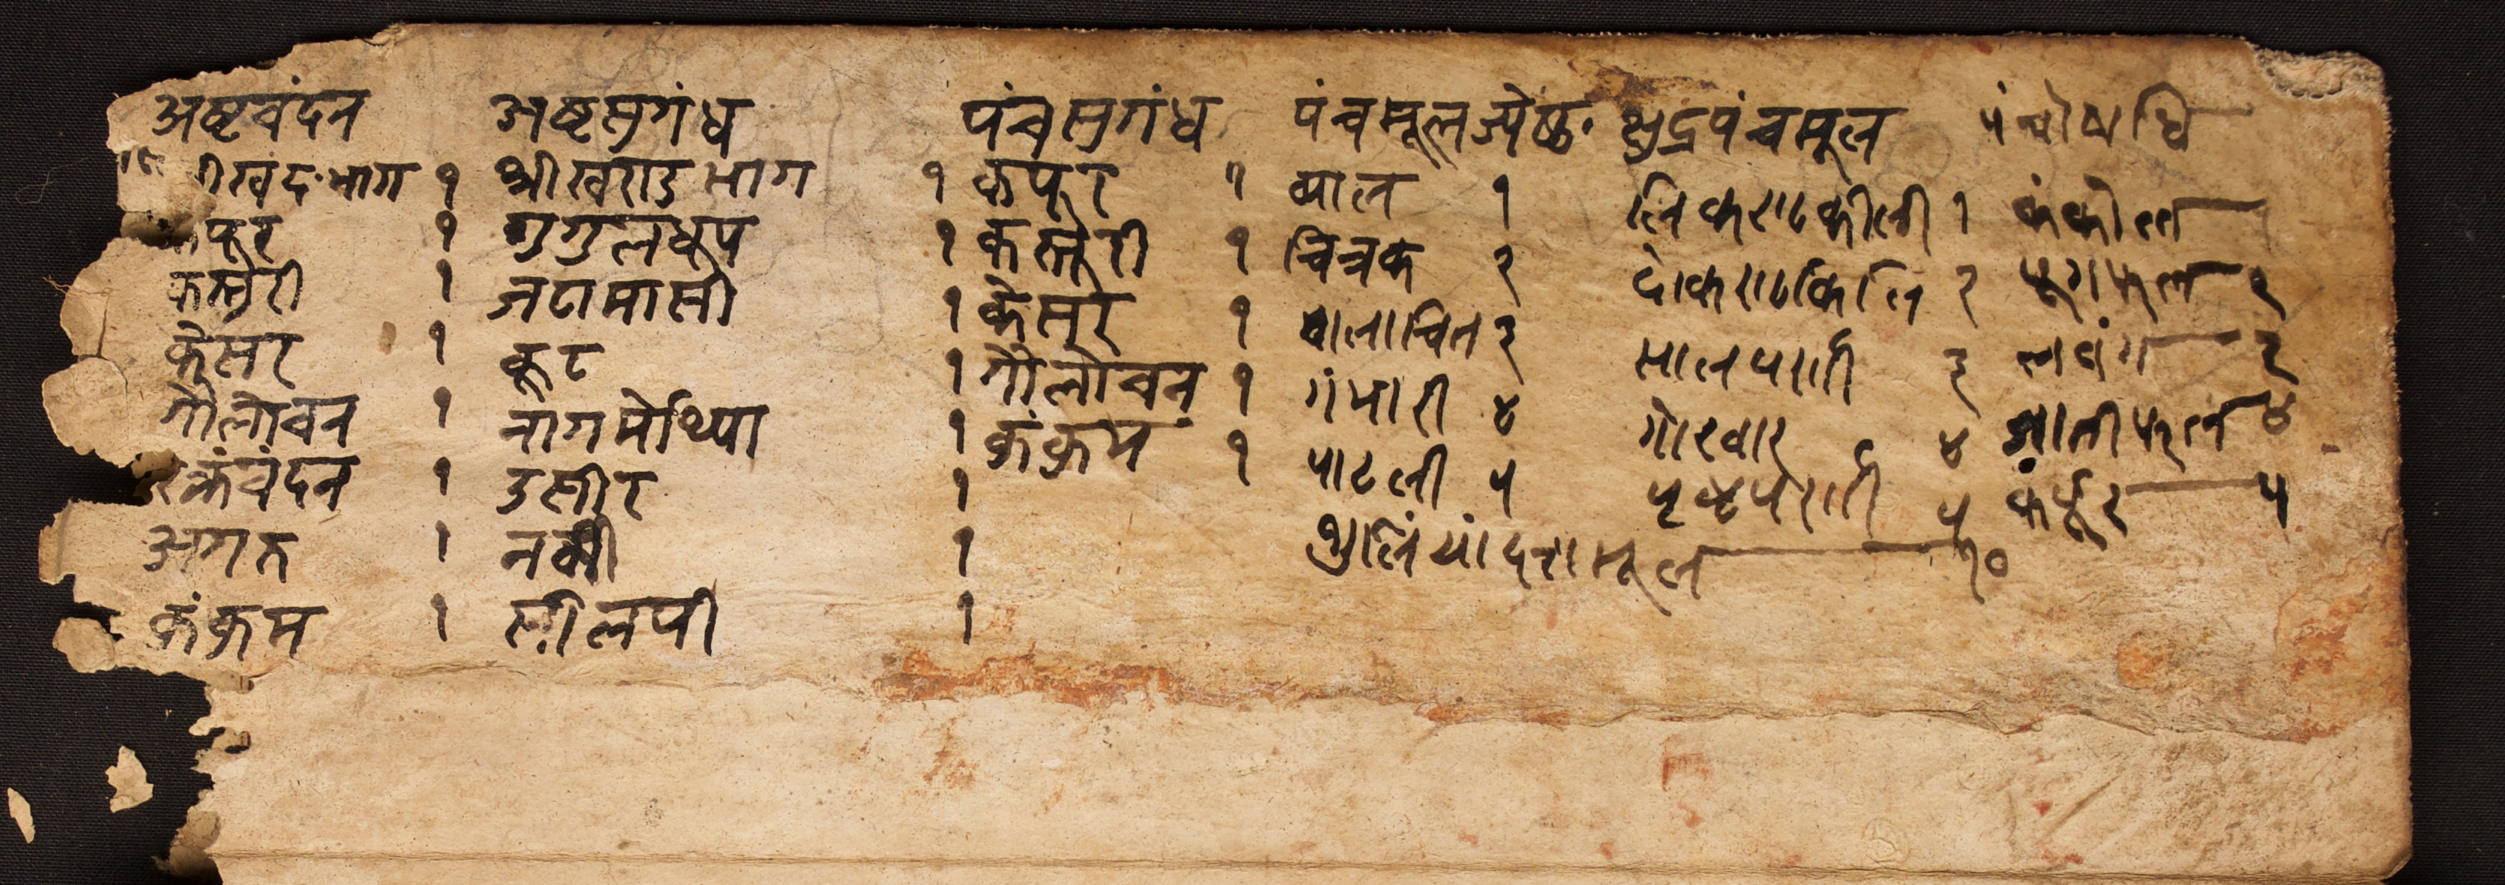 अष्टचंदन अष्टसुगंध पंचसुगंध पंचमूलज्येष्ठ क्षुद्रपंचमूल पंचौषधि
खंद भाग १ श्रीखण्ड भाग १ कपूर १ व्याल १ लिकण्टकीली १ कंकोल
१ गुगुलधूप १ कस्तूरी १ चित्रक २ देाकण्टकिलि २ पूगफल २
कस्तुरी १ जटामासी १ केसर १ वालाचित ३ सालपर्णी ३ लवंग ३
केसर १ कूट १ गौलोचन १ गंभारी ४ गोरवार ४ जातीफल ४
गौलोचन १ नागमोथ्या १ कंकुम १ पाटली ५ पृष्टपर्णी ५ कर्पूर ५
रक्तचंदन १ उसीर १
अगरु १ नखी १ मूल १०
कंकुम १ सीलपी १